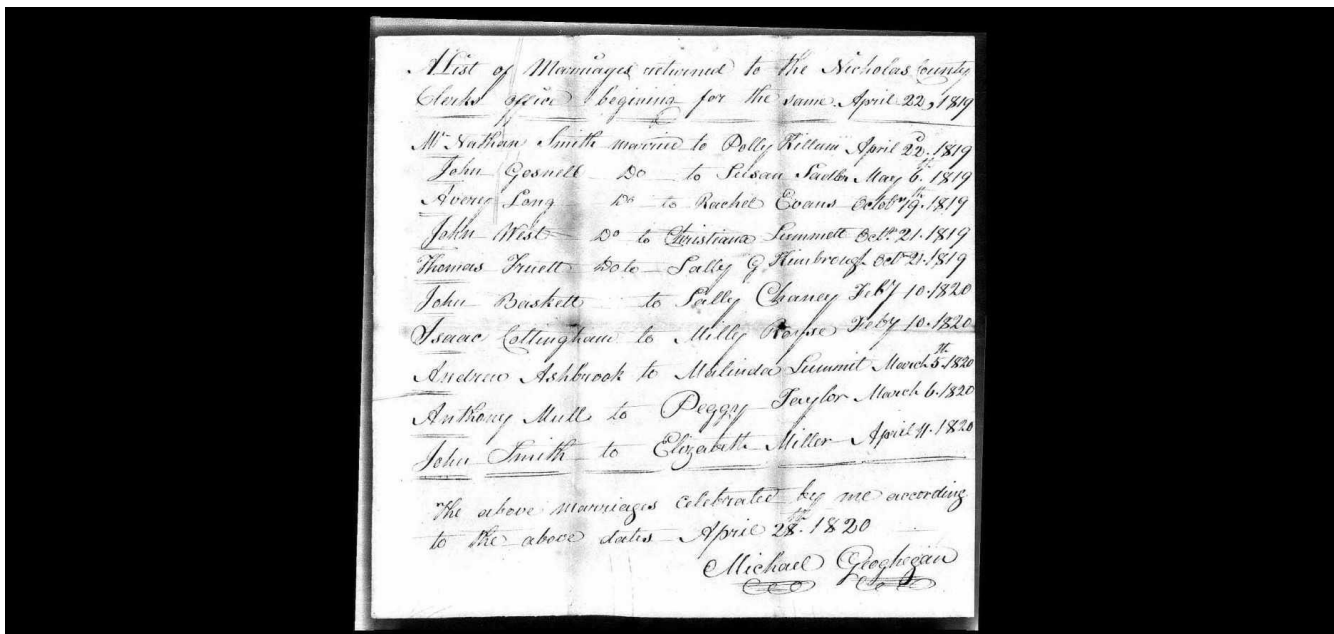 A List of Marriages returned to the Nicholas County
Clerks office begining for the same April 22, 1819
Mr Nathan Smith married to Polly April 22d. 1819
John Gosnell Do to Susan Sadler May 6th. 1819
Avery Long Do to Rachel Evans Octobr 19th. 1819
John West Do to Christiana Summett Octr. 21. 1819
Thomas Truett Do to Sally G Kimbrough Octr 21. 1819
John Baskett to Sally Chaney Feby 10. 1820
Isaac Cottingham to Milly Royse Feby 10. 1820
Andrew Ashbrook to Malinda Summit March 5th. 1820
Anthony Mull to Peggy Taylor March 6. 1820
John Smith to Elizabeth Miller April 11. 1820
The above marriages celebrated by me according
to the above dates April 28th. 1820
Michael Geoghegan